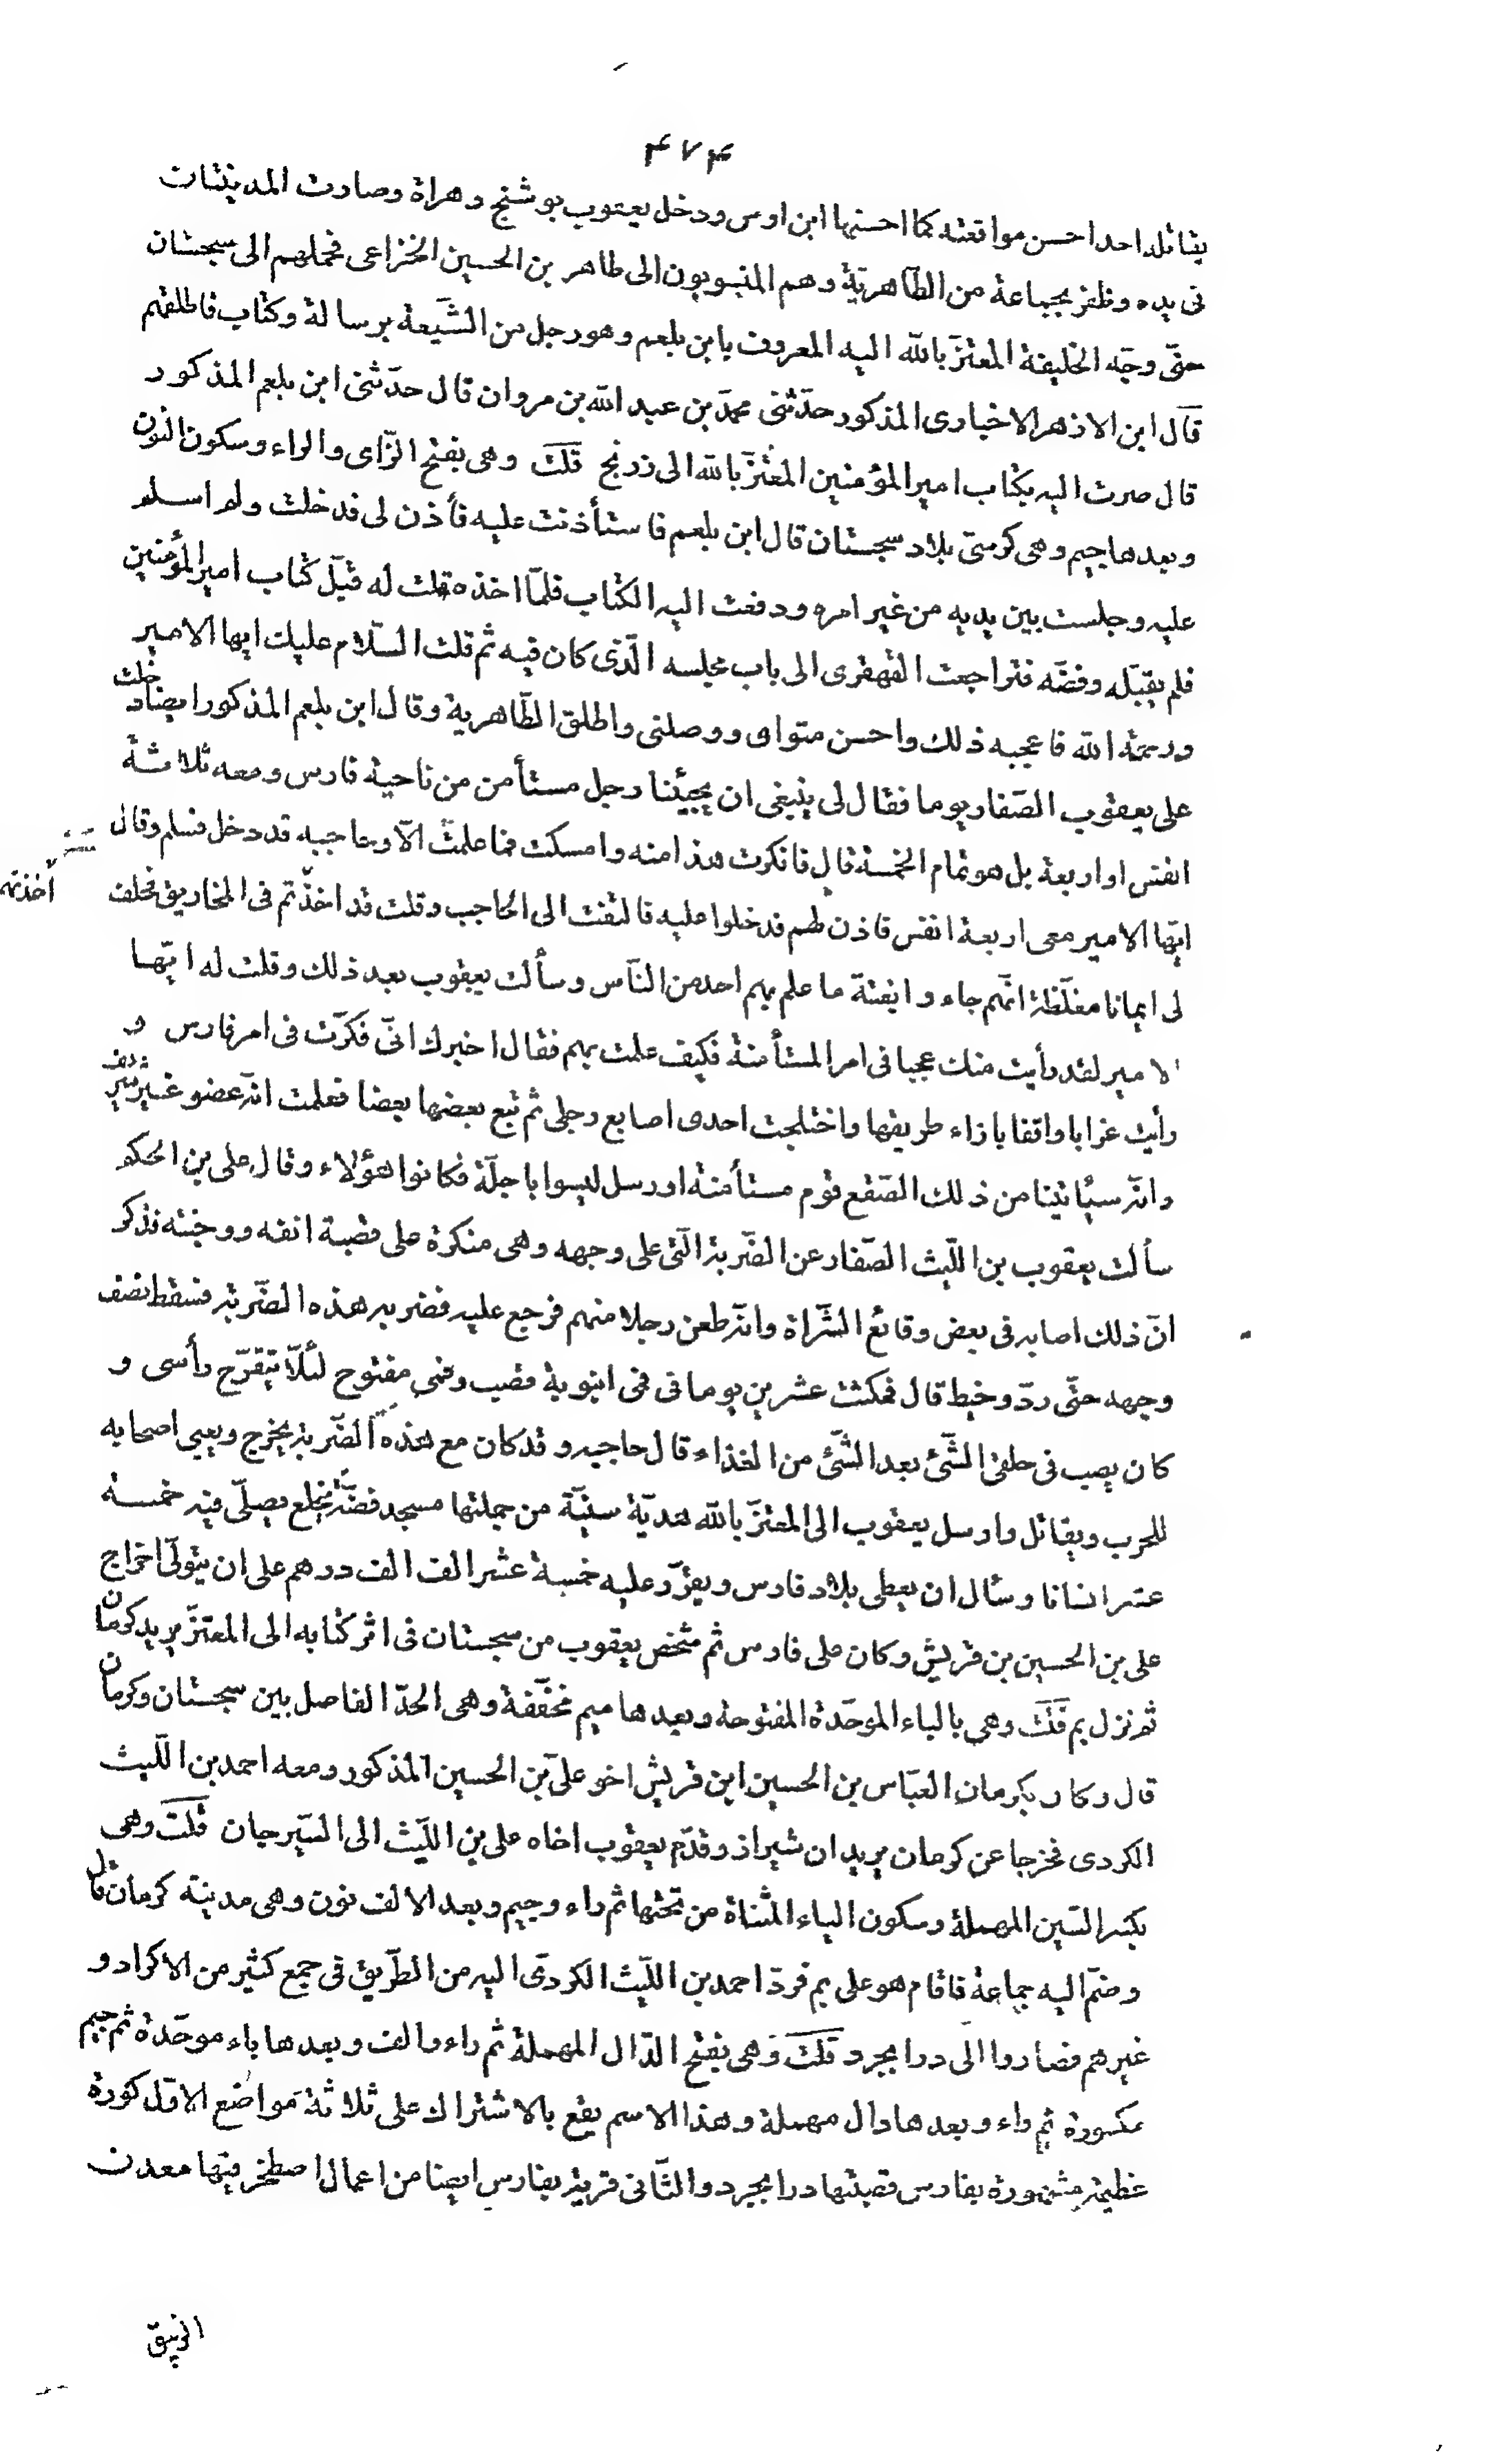 ۴۷۴
يقاتله احدا حسن مواقعته كما احسنها ابن اوس ودخل يعقوب بوشنج وهراة وصارت المدينتان
فى يده وظفر بجماعة من الطّاهريّة وهم المنسوبون الى طاهر بن الحسين الخزاعى فحملهم الى سجستان
حتّى وجّه الخليفة المعتزّ بالله اليه المعروف بابن بلعم وهو رجل من الشّيعة برسالة وكتاب فاطلقهم
قال ابن الازهر الاخبارى المذكور حدّثنى محمّد بن عبد الله بن مروان قال حدّثنى ابن بلعم المذكور
قال صرت اليه بكتاب امير المؤمنين المعتزّ بالله الى زرنج قلت وهى بفتح الزّاى والراء وسكون النون
وبعدها جيم وهى كرسىّ بلاد سجستان قال ابن بلعم فاستأذنت عليه فأذن لى فدخلت ولم اسلم
عليه وجلست بين يديه من غير امره ودفعت اليه الكتاب فلمّا اخذه قلت له قبّل كتاب امير المؤمنين
فلم يقبّله وفضّه فتراجعت القهقرى الى باب مجلسه الّذى كان فيه ثم قلت السّلام عليك ايها الامير
ورحمة الله فاعجبه ذلك واحسن مثواى ووصلنى واطلق الطّاهرية وقال ابن بلعم المذكور ايضا دخلت
على يعقوب الصّفار يوما فقال لى ينبغى ان يجيئنا رجل مستأمن من ناحية فارس ومعه ثلاثة
انفس او اربعة بل هو تمام الخمسة قال فانكرت هذا منه وامسكت فما علمت الّا وحاجبه قد دخل فسلم وقال
ايّها الامير معى اربعة انفس فاذن لهم فدخلوا عليه فالتفت الى الحاجب وقلت قد اخذّتم فى المخاريق فحلف
أخذتم
لى ايمانا مغلّظة انّهم جاءوا بغتة ما علم بهم احد من النّاس وسألت يعقوب بعد ذلك وقلت له ايّها
الامير لقد رأيت منك عجبا فى امر المستأمنة فكيف علمت بهم فقال اخبرك انّى فكّرت فى امر فارس و
رأيت غرابا واقفا بازاء طريقها واختلجت احدى اصابع رجلى ثم تبع بعضها بعضا فعلمت انّه عضو غير شريف
وانّه سيأتينا من ذلك الصّقع قوم مستأمنة او رسل ليسوا باجلّة فكانوا هؤلاء وقال على بن الحكم
سألت يعقوب بن اللّيث الصّفار عن الضّربة الّتى على وجهه وهى منكرة على قصبة انفه ووجنته فذكر
انّ ذلك اصابه فى بعض وقائع الشّراة وانّه طعن رجلا منهم فرجع عليه فضربه هذه الضّربة فسقط نصف
وجهه حتّى ردّ وخيط قال فمكثت عشرين يوما فى فمى انبوبة قصب وفمى مفتوح لئلّا يتقرّح رأسى و
كان يصب فى حلقى الشّئ بعد الشّئ من الغذاء قال حاجبه وقد كان مع هذه الضّربة يخرج ويعبى اصحابه
للحرب ويقاتل وارسل يعقوب الى المعتزّ بالله هديّة سنيّة من جملتها مسجد فضّة مخلع يصلّى فيه خمسة
عشر انسانا وسأل ان يعطى بلاد فارس ويقرّر عليه خمسة عشر الف الف درهم على ان يتولّى اخراج
على بن الحسين بن قريش وكان على فارس ثم شخص يعقوب من سجستان فى اثر كتابه الى المعتزّ يريد كرمان
ثم نزل بم قلت وهى بالباء الموحّدة المفتوحة وبعدها ميم مخفّفة وهى الحدّ الفاصل بين سجستان وكرمان
قال وكان بكرمان العبّاس بن الحسين ابن قريش اخو علىّ بن الحسين المذكور ومعه احمد بن اللّيث
الكردى فخرجا عن كرمان يريدان شيراز وقدّم يعقوب اخاه على بن اللّيث الى السّيرجان قلت وهى
بكسر السّين المهملة وسكون الياء المثناة من تحتها ثم راء وجيم وبعد الالف نون وهى مدينة كرمان قال
وضمّ اليه جماعة فاقام هو على بم فردّ احمد بن اللّيث الكردى اليه من الطّريق فى جمع كثير من الاكراد و
غيرهم فصاروا الى درابجرد قلت وهى بفتح الدّال المهملة ثم راء والف وبعدها باء موحّدة ثم جيم
مكسورة ثم راء وبعدها دال مهملة وهذا الاسم يقع بالاشتراك على ثلاثة مواضع الاوّل كورة
عظيمة مشهورة بفارس قصبتها درابجرد والثّانى قرية بفارس ايضا من اعمال اصطخر فيها معدن
الزيبق